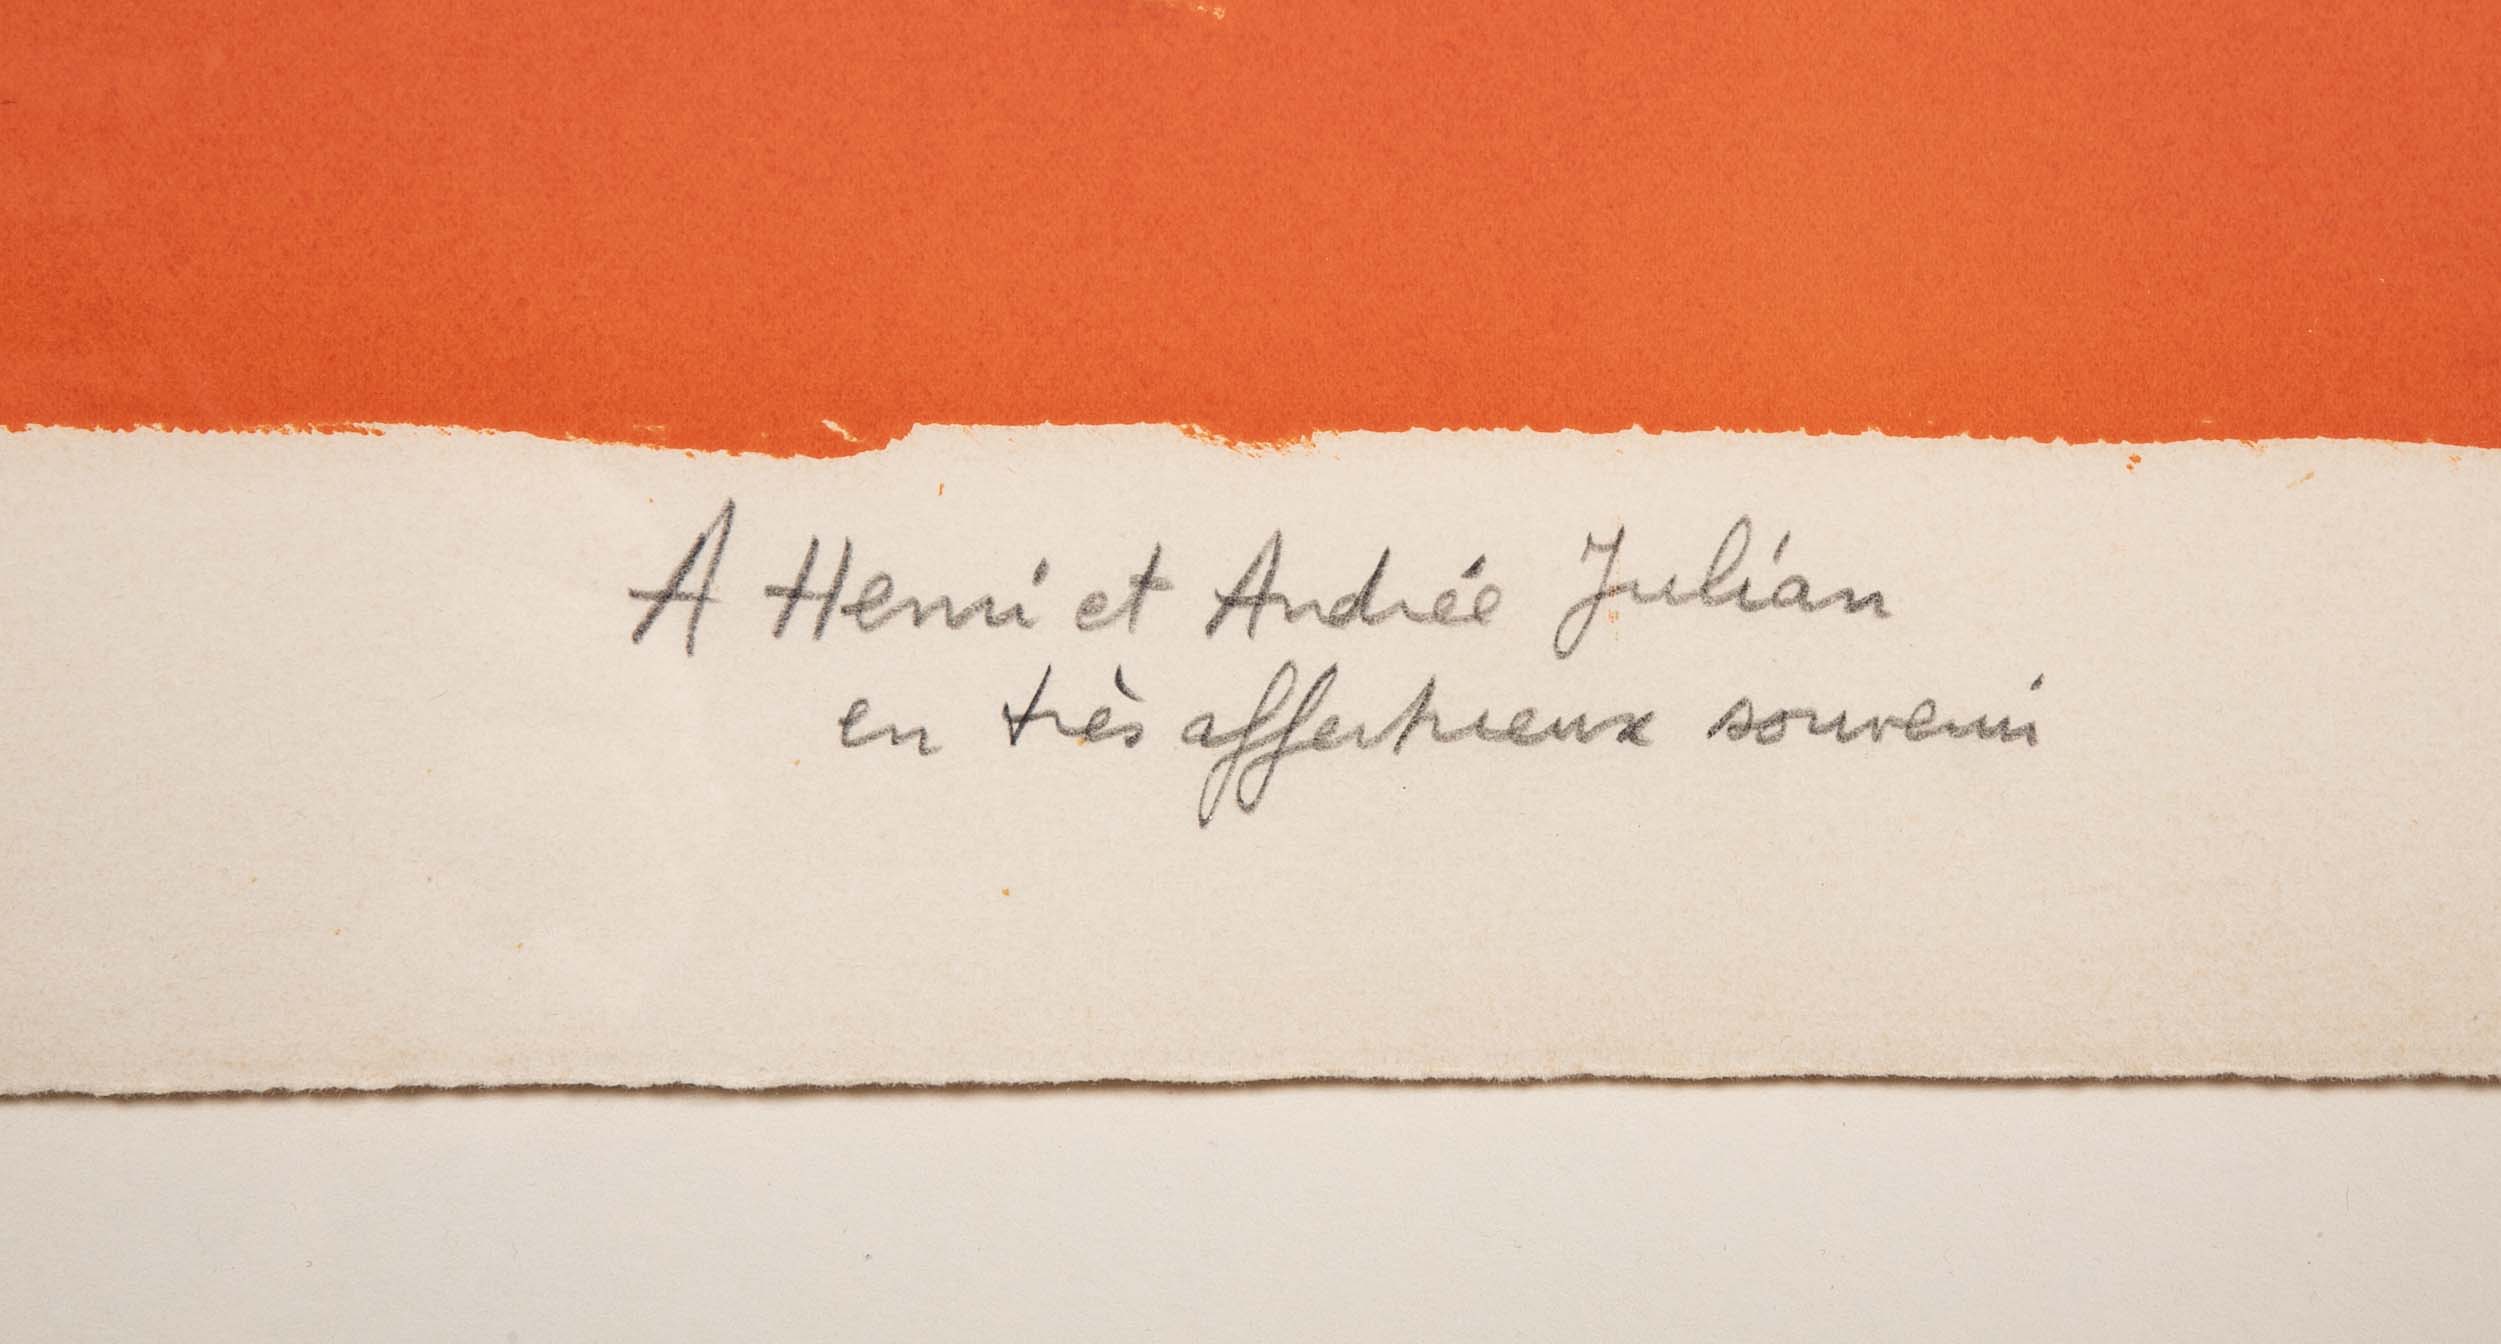 A Henri et Andrée Julian
en très affectueux souvenir